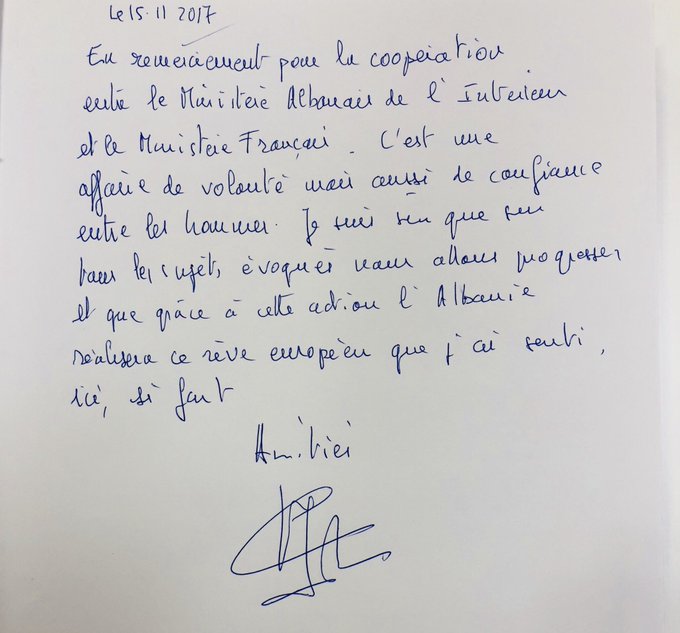 Le 15.11 2017
En remerciement pour la coopération
entre le Ministère Albanais de l'Intérieur
et le Ministère Français. C'est une
affaire de volonté mais aussi de confiance
entre les hommes. Je suis sûr que sur
tous les sujets évoqués nous allons progresser
et que grâce à cette action l'Albanie
réalisera ce rêve européen que j'ai senti,
ici, si fort
Amitiés